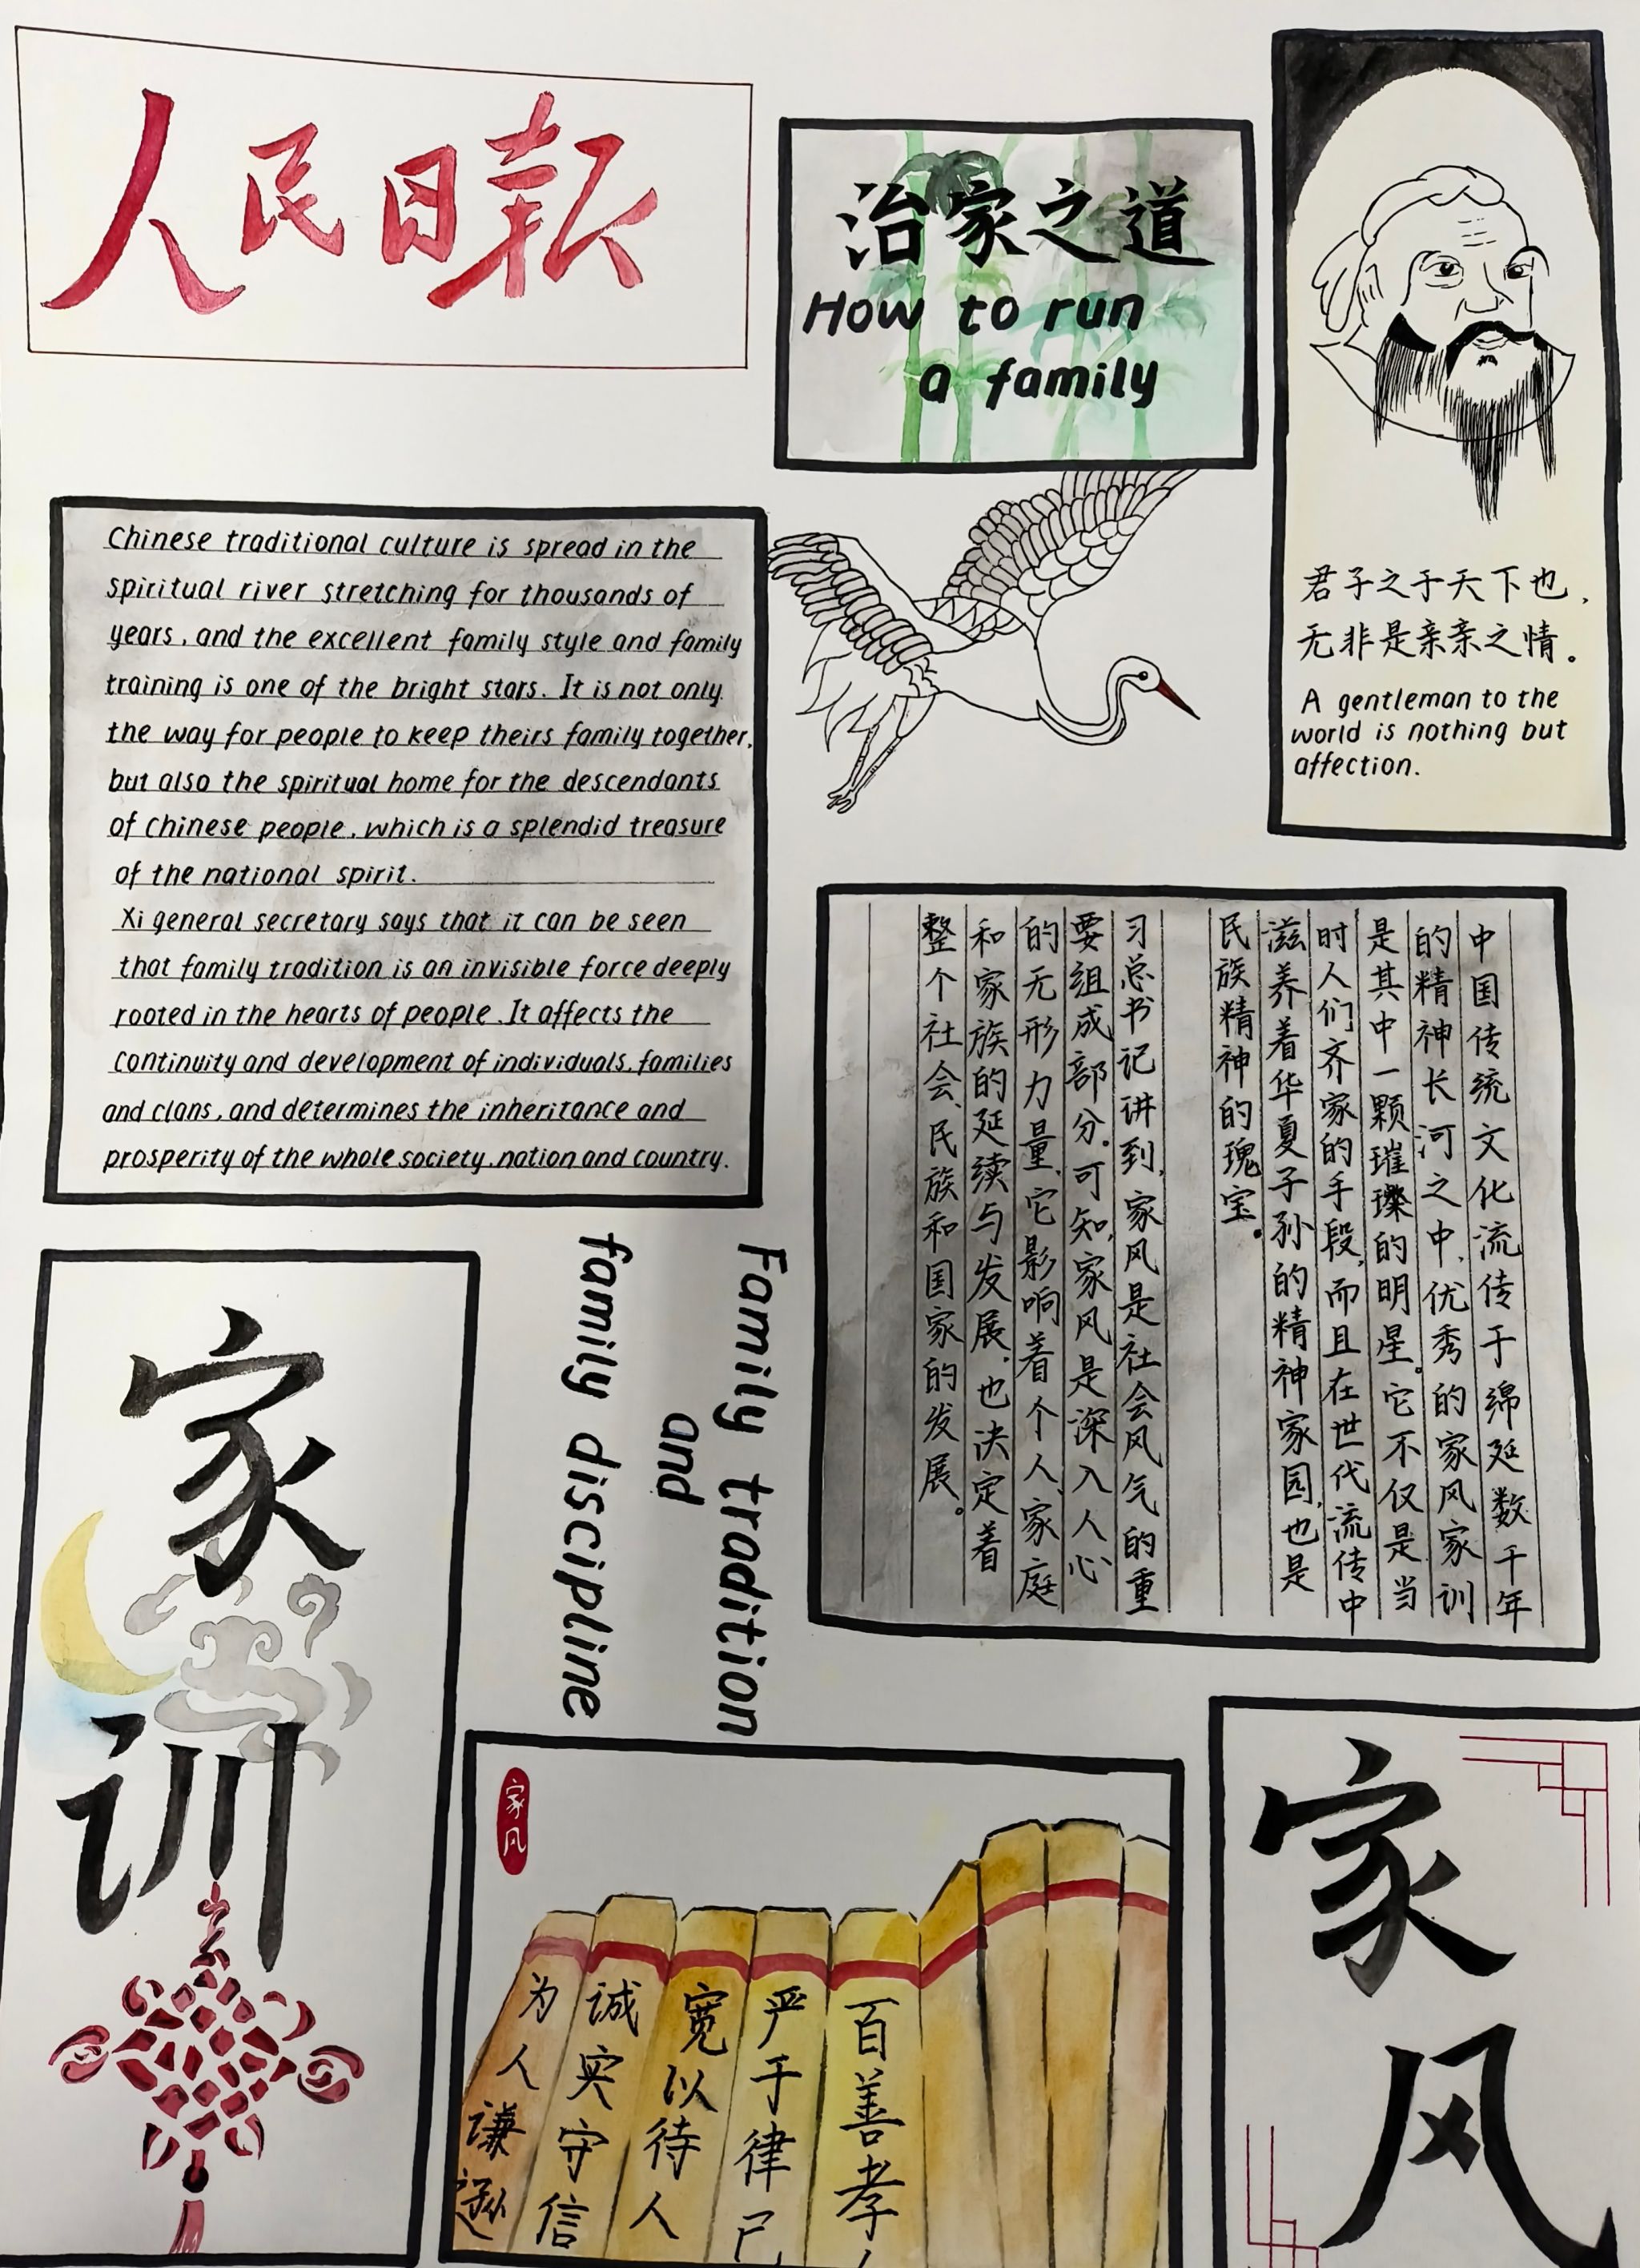 人民日报
治家之道
How to run
a family
君子之于天下也,
无非是亲亲之情。
A gentleman to the
world is nothing but
affection.
Chinese traditional culture is spread in the
spiritual river stretching for thousands of
years, and the excellent family style and family
training is one of the bright stars. It is not only
the way for people to keep theirs family together,
but also the spiritual home for the descendants
of Chinese people, which is a splendid treasure
of the national spirit.
Xi general secretary says that it can be seen
that family tradition is an invisible force deeply
rooted in the hearts of people. It affects the
continuity and development of individuals, families
and clans, and determines the inheritance and
prosperity of the whole society, nation and country.
中国传统文化流传于绵延数千年
的精神长河之中,优秀的家风家训
是其中一颗璀璨的明星。它不仅是当
时人们齐家的手段,而且在世代流传中
滋养着华夏子孙的精神家园,也是
民族精神的瑰宝。
习总书记讲到,家风是社会风气的重
要组成部分。可知,家风是深入人心
的无形力量,它影响着个人、家庭
和家族的延续与发展,也决定着
整个社会、民族和国家的发展。
Family tradition
and
family discipline
家训
家风
为人谦逊
诚实守信
宽以待人
严于律己
百善孝
家风